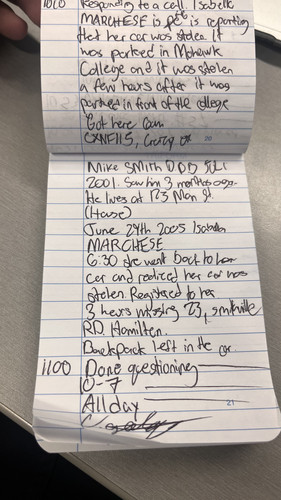 1010 Responding to a call. Isabella
MARCHESE is reporting
that her car was stolen. it
was parked in Mohawk
College and it was stolen
a few hours after it was
parked in front of the college
Got here 0am
20
Mike SMITH DOB JUL 1
2001. Saw him 3 months ago.
He lives at 123 Main St.
(House)
June 29th 2005 Isabella
MARCHESE
6:30 she went back to her
car and realized her car was
stolen. Registered to her
3 hours missing 23, smithville
RD Hamilton.
Backpack left in the car
1100 Done questioning
0-7
All day
21